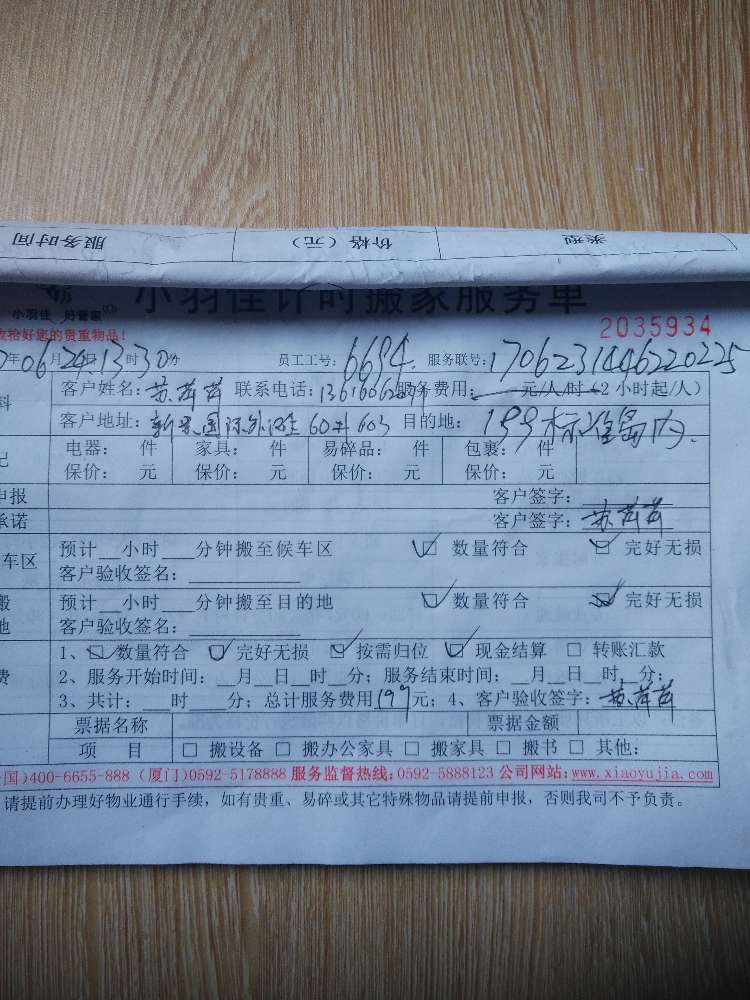 服务时间 价格（元） 类型
小羽佳计时搬家服务单
小羽佳 好管家
2035934
收拾好您的贵重物品！
年06月24日13时30分 员工工号：6694 服务联号：1706231446220225
料
客户姓名：苏 联系电话： 服务费用： 元/人/时（2小时起/人）
客户地址：新景国际外滩 60# 603 目的地：199标准岛内
记
电器： 件 家具： 件 易碎品： 件 包裹： 件
保价： 元 保价： 元 保价： 元 保价： 元
申报 客户签字：
承诺 客户签字：苏
车区
预计__小时___分钟搬至候车区 ☑ 数量符合 ☑ 完好无损
客户验收签名：
搬
地
预计__小时___分钟搬至目的地 ☑ 数量符合 ☑ 完好无损
客户验收签名：
1、☑ 数量符合 ☑ 完好无损 ☑ 按需归位 ☑ 现金结算 □ 转账汇款
费
2、服务开始时间：__月__日__时__分；服务结束时间：__月__日__时__分；
3、共计：___时___分；总计服务费用199元；4、客户验收签字：苏
票据名称 票据金额
项 目 □ 搬设备 □ 搬办公家具 □ 搬家具 □ 搬书 □ 其他：
国)400-6655-888 (厦门)0592-5178888 服务监督热线：0592-5888123 公司网站：www.xiaoyujia.com
请提前办理好物业通行手续，如有贵重、易碎或其它特殊物品请提前申报，否则我司不予负责。